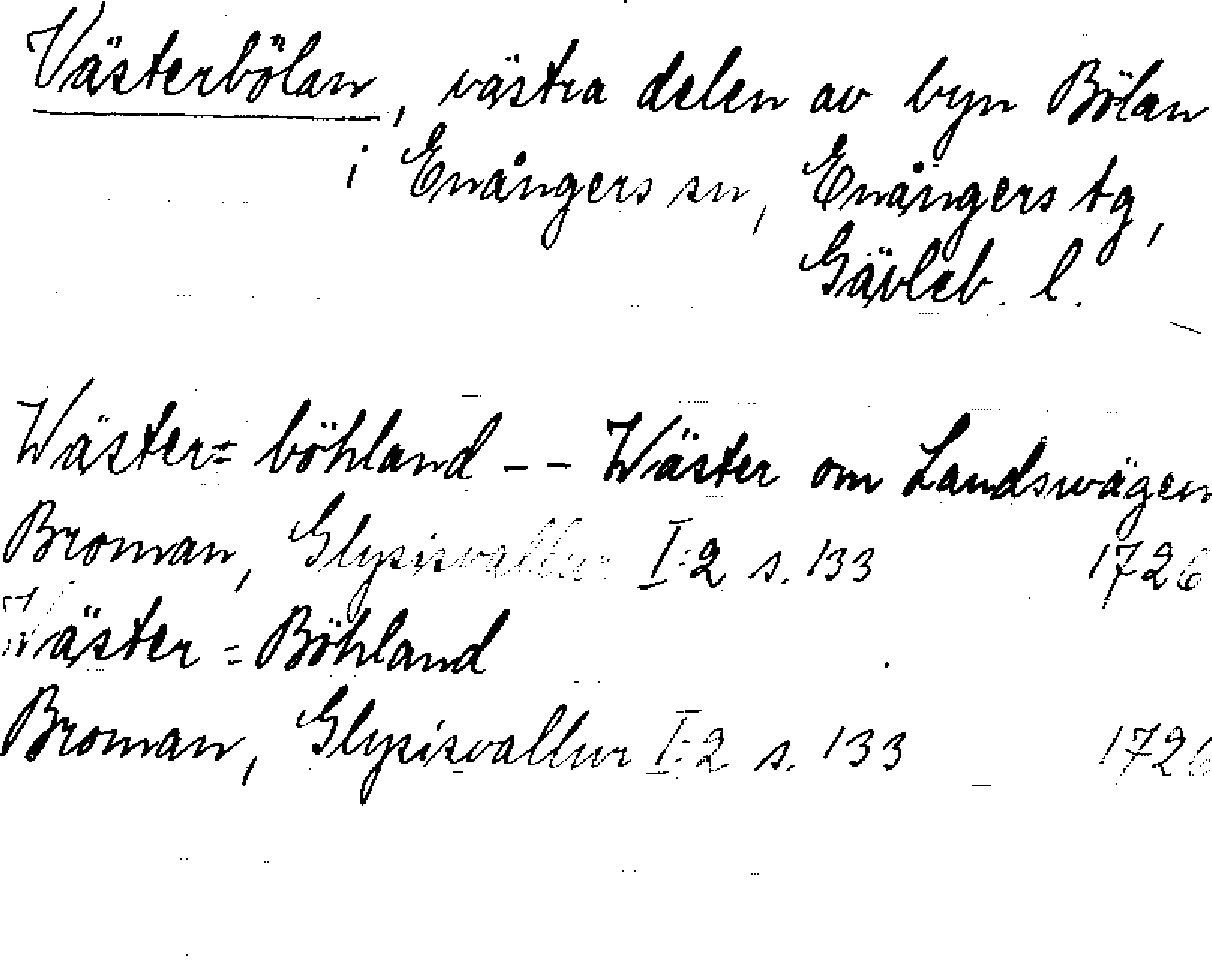 Västerbölan, västra delen av byn Bölan
i Enångers sn, Enångers tg,
Gävleb. l.
Wäster= böhland -- Wäster om Landswägen
Broman, Glysisvallur I:2 s. 133 1726
Wäster = Böhland
Broman, Glysisvallur I:2 s. 133 1726